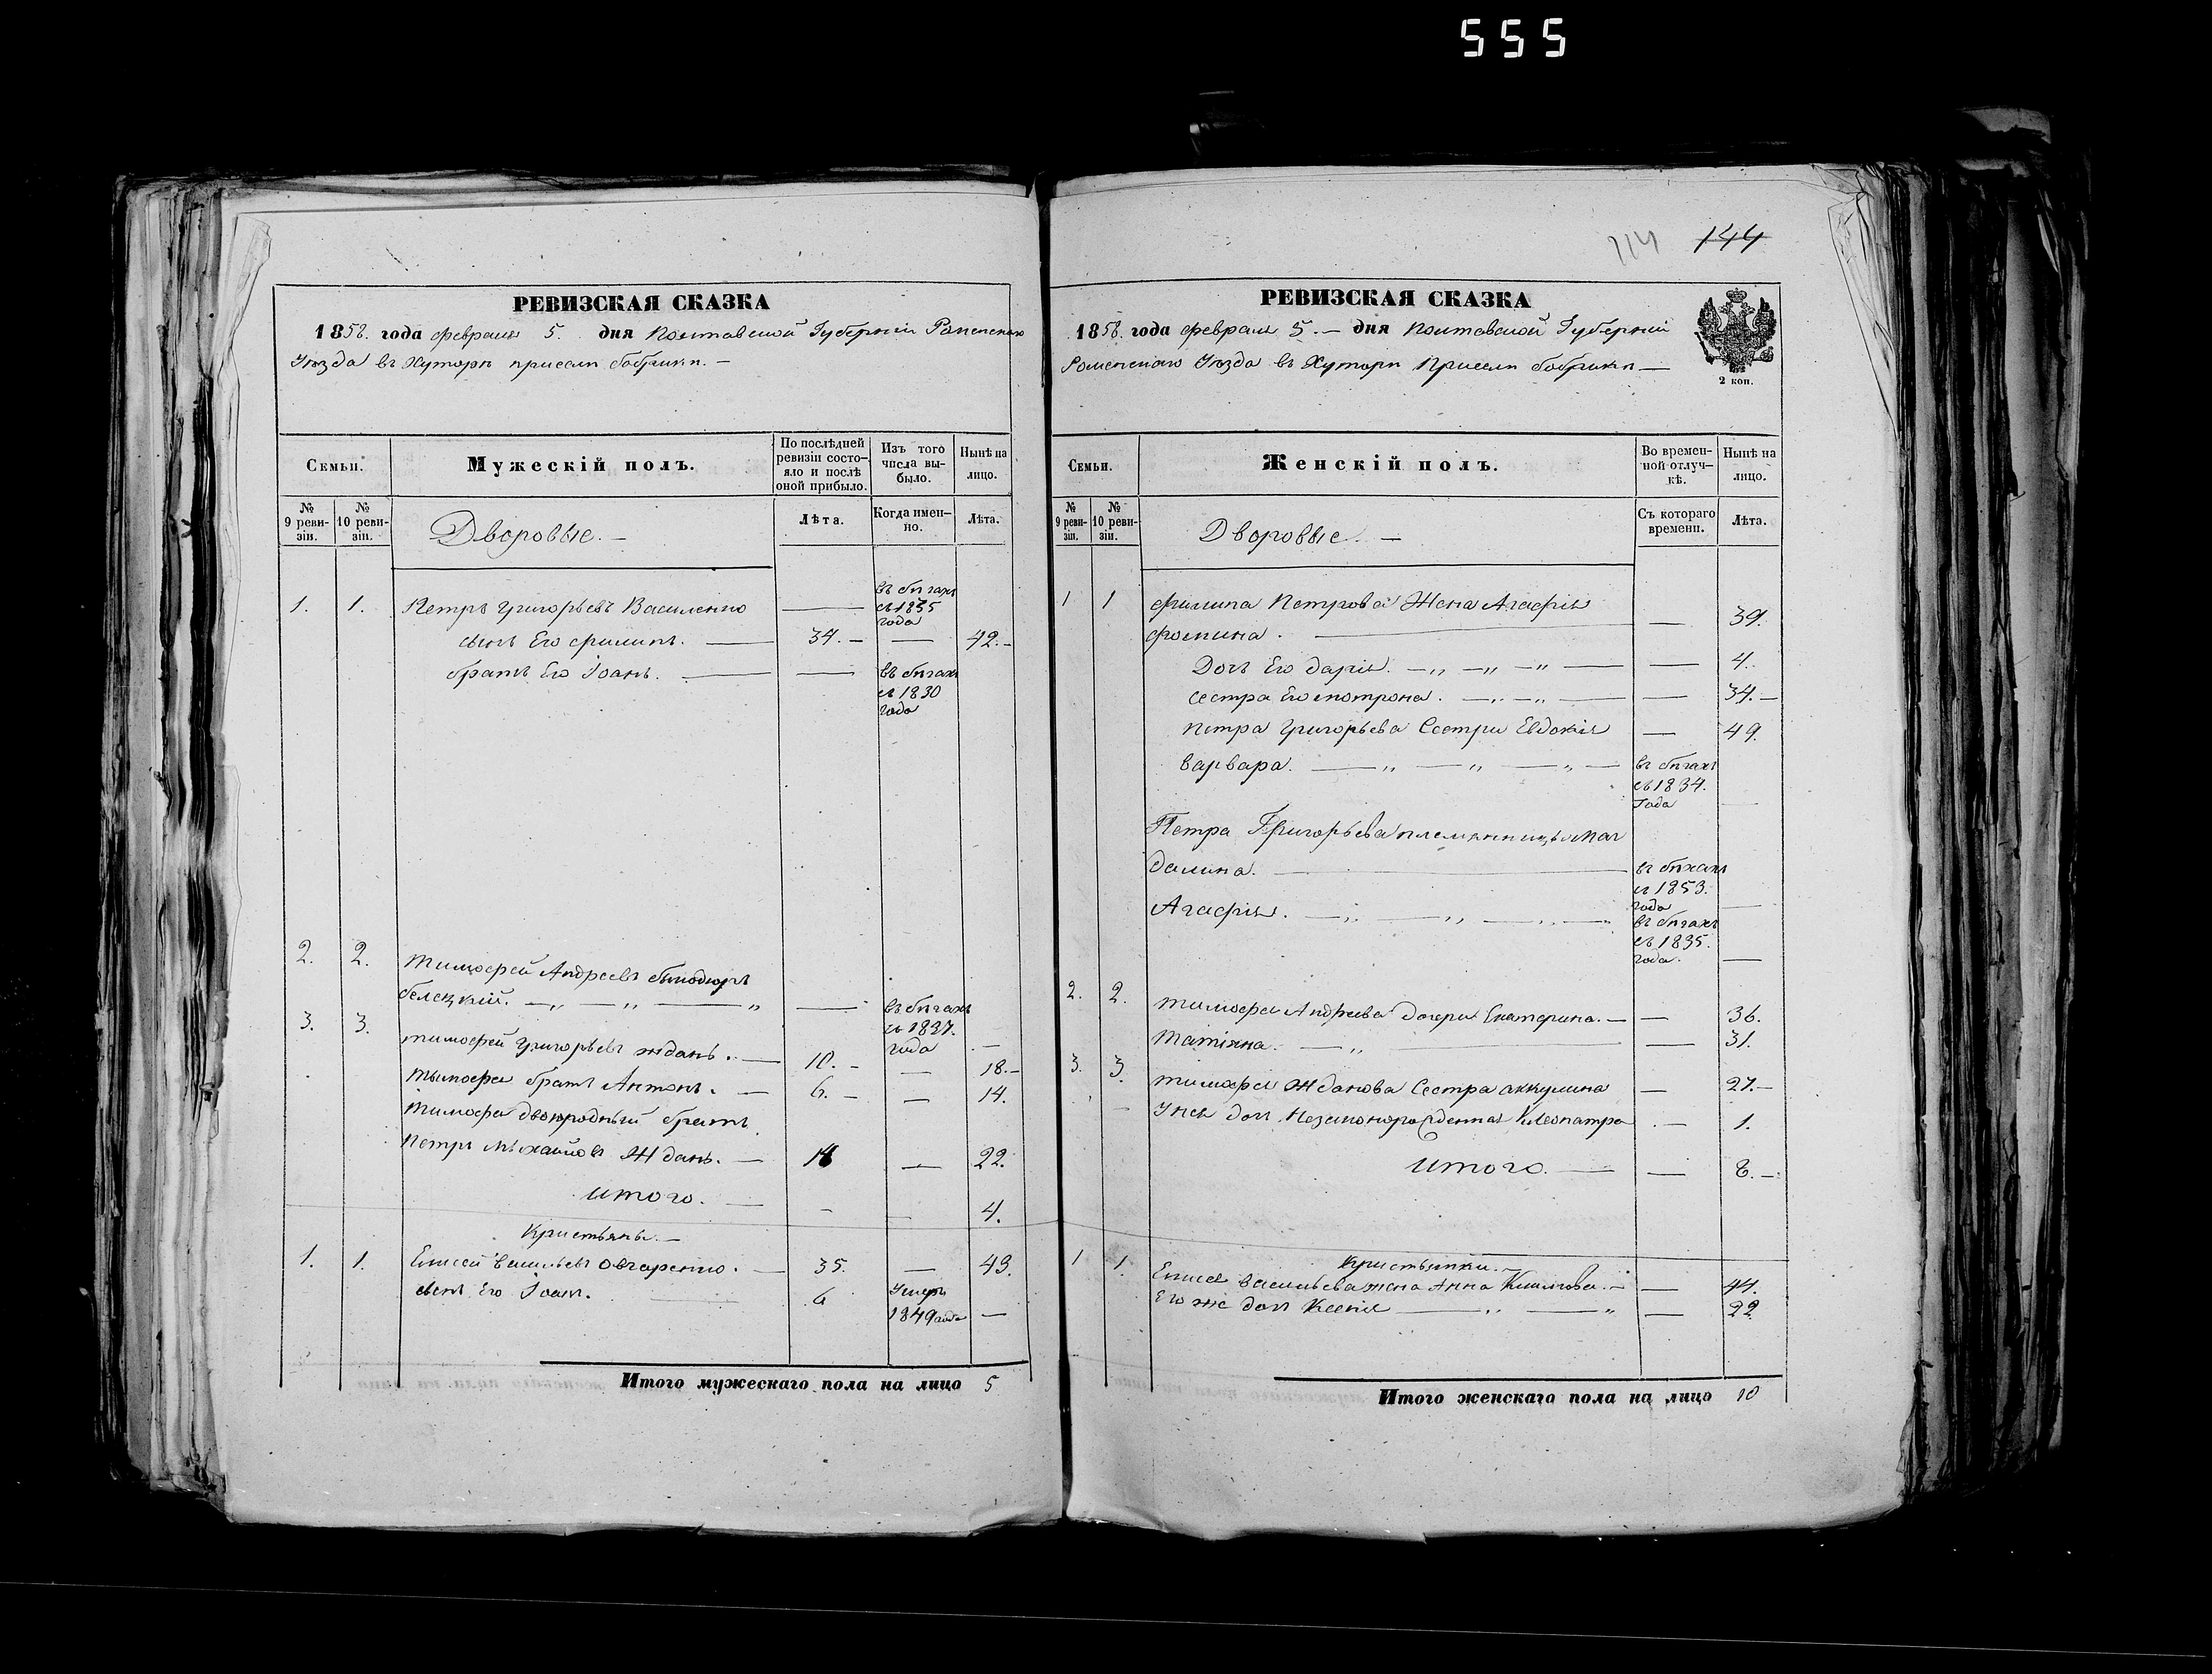 555
114 144
РЕВИЗСКАЯ СКАЗКА
1858. года февраля 5. дня Полтавской Губерніи Роменскаго
Уѣзда въ Хуторѣ приселѣ бобрикѣ. —
Семьи.
Мужескій полъ.
По послѣдней ревизіи состо- яло и послѣ оной прибыло.
Изъ того числа вы- было.
Нынѣ на лицо.
№ 9 реви- зіи.
№ 10 реви- зіи.
Дворовые. —
Лѣта.
Когда имен- но.
Лѣта.
1. 1. Петръ Григорьевъ Василенко — въ бѣгахъ съ 1835 года
сынъ Его филипъ. — 34. — — 42. —
братъ Его Іоанъ. — — въ бѣгахъ съ 1830 года
2. 2. тимофей Андреевъ
белецкій. — „ — „ — „ — въ бѣгахъ съ 1837. года —
3. 3. тимофей Григорьевъ жданъ. — 10. — — 18. —
тымофея братъ Антонъ. — 6. — — 14.
тимофея двоюродный братъ
Петръ михайловъ Жданъ. — 14 — 22.
итого. — — — 4.
Кристьяны. —
1. 1. Елисей Васильевъ Овчаренко. — 35. — 43.
сынъ Его Іоанъ. 6 Умеръ 1849 года —
Итого мужескаго пола на лицо 5
РЕВИЗСКАЯ СКАЗКА
1858. года февраля 5. — дня Полтавской Губерніи
Роменскаго Уѣзда въ Хуторѣ Приселѣ бобрикѣ —
2 коп.
Семьи.
Женскій полъ.
Во времен- ной отлуч- кѣ.
Нынѣ на лицо.
№ 9 реви- зіи.
№ 10 реви- зіи.
Дворовые. —
Съ котораго времени.
Лѣта.
1 1 филипа Петрова Жена Агафія
фомина. — — 39.
Дочь Его дарія. — „ — „ — „ — — 4.
сестра Его мотрона. — „ — „ — — 34. —
петра Григорьева Сестри Евдокія — 49.
варвара. — „ — „ — „ — въ бѣгахъ съ 1834. Года —
Петра Григорьева племянницы маг
далина. — въ бѣгахъ съ 1853. года —
Агафія. — „ — „ — „ — въ бѣгахъ съ 1835. года. —
2. 2. тимофея Андреева дочери Екатерина. — — 36.
Татіяна. — „ — — 31.
3. 3. тимофея Жданова Сестра аккулина — 27. —
У нея дочь Незаконорожденная Клеопатра — 1.
итого. — — 8. —
Кристьянки. —
1 1. Елисея васильева жена Анна — — 44.
Его же дочь Ксенія — „ — „ — 22.
Итого женскаго пола на лицо 10